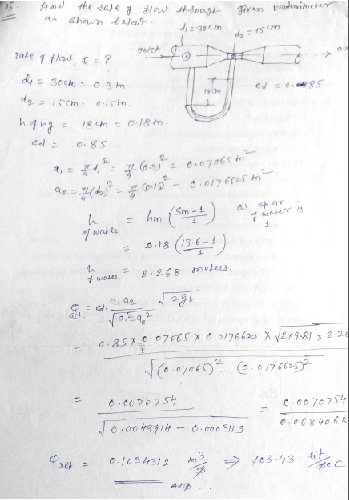 Find the rate of flow through given venturimeter
as shown below.
d₁ = 30cm d₂ = 15cm
inlet
rate of flow, Q = ?
d₁ = 30cm = 0.3m
d₂ = 15cm = 0.15m
18cm
cd = 0.85
h of Hg = 18cm = 0.18m
cd = 0.85
a₁ = π/4 d₁² = π/4 (0.3)² = 0.07065m²
a₂ = π/4 (d₂)² = π/4 (0.15)² = 0.0176625m²
h of water = hm (Sm-1/1) as sp gr of water is 1.
= 0.18 (13.6-1/1)
h of water = 2.268 meters.
Qact = cd. a₁a₂ / √a₁²-a₂² √2gh
= 0.85 × 0.07065 × 0.0176625 × √2×9.81×2.26
√(0.07065)² - (0.0176625)²
= 0.0070754 / √0.0049914 - 0.0003113 = 0.0070754 / 0.068406
Qact = 0.1034312 m³/s ⇒ 103.43 lit/sec